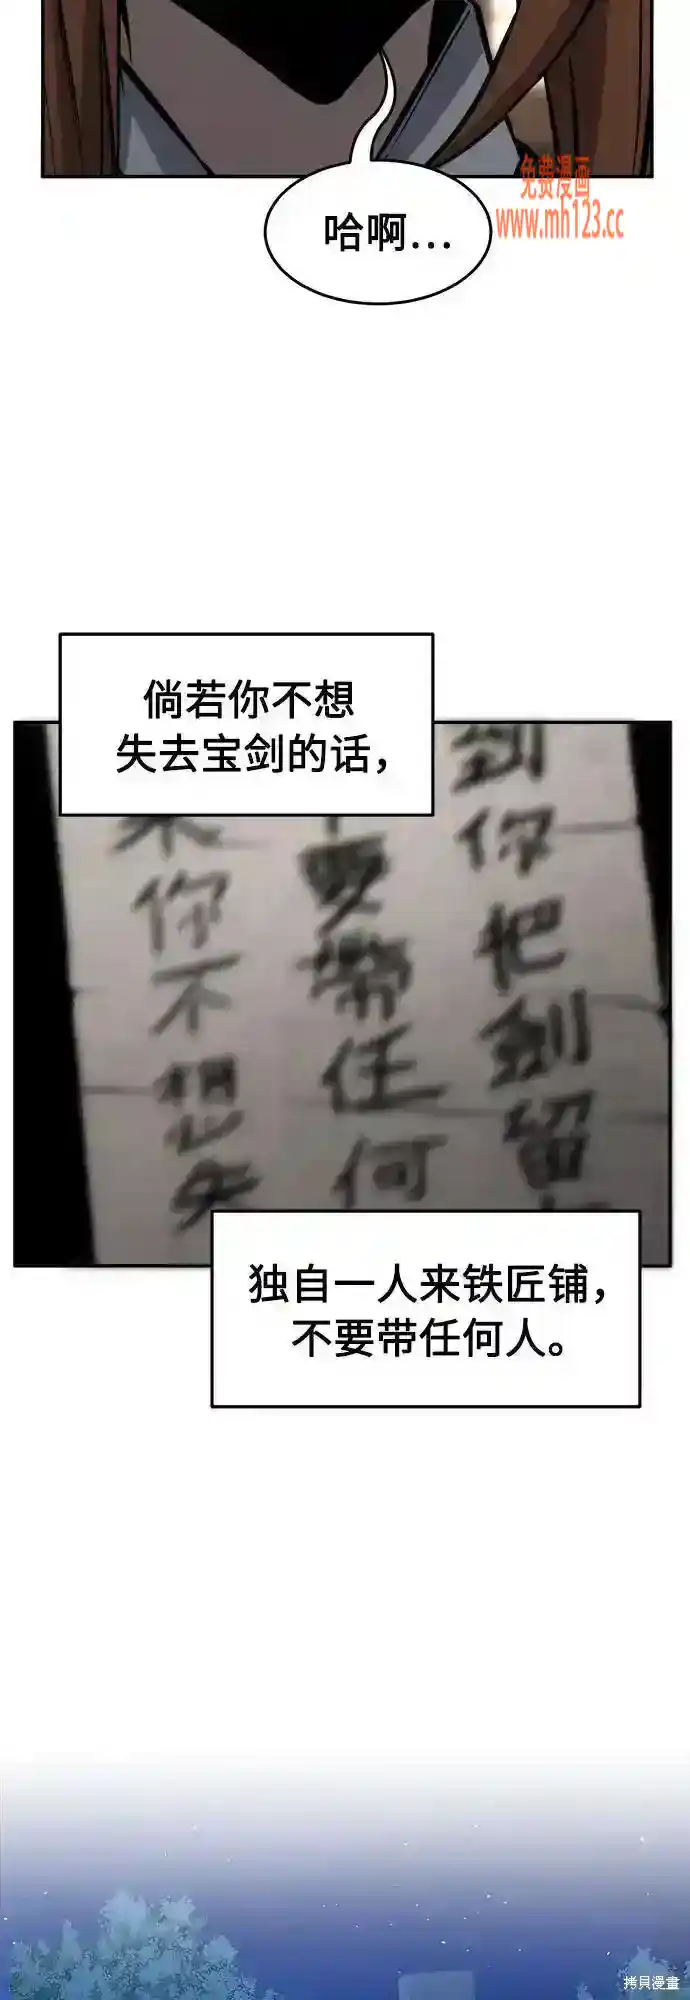 免费漫画
www.mh123.cc
哈啊...
倘若你不想
失去宝剑的话,
到你把剑留
不要带任何
来你不想失
独自一人来铁匠铺,
不要带任何人。
拷貝漫畫